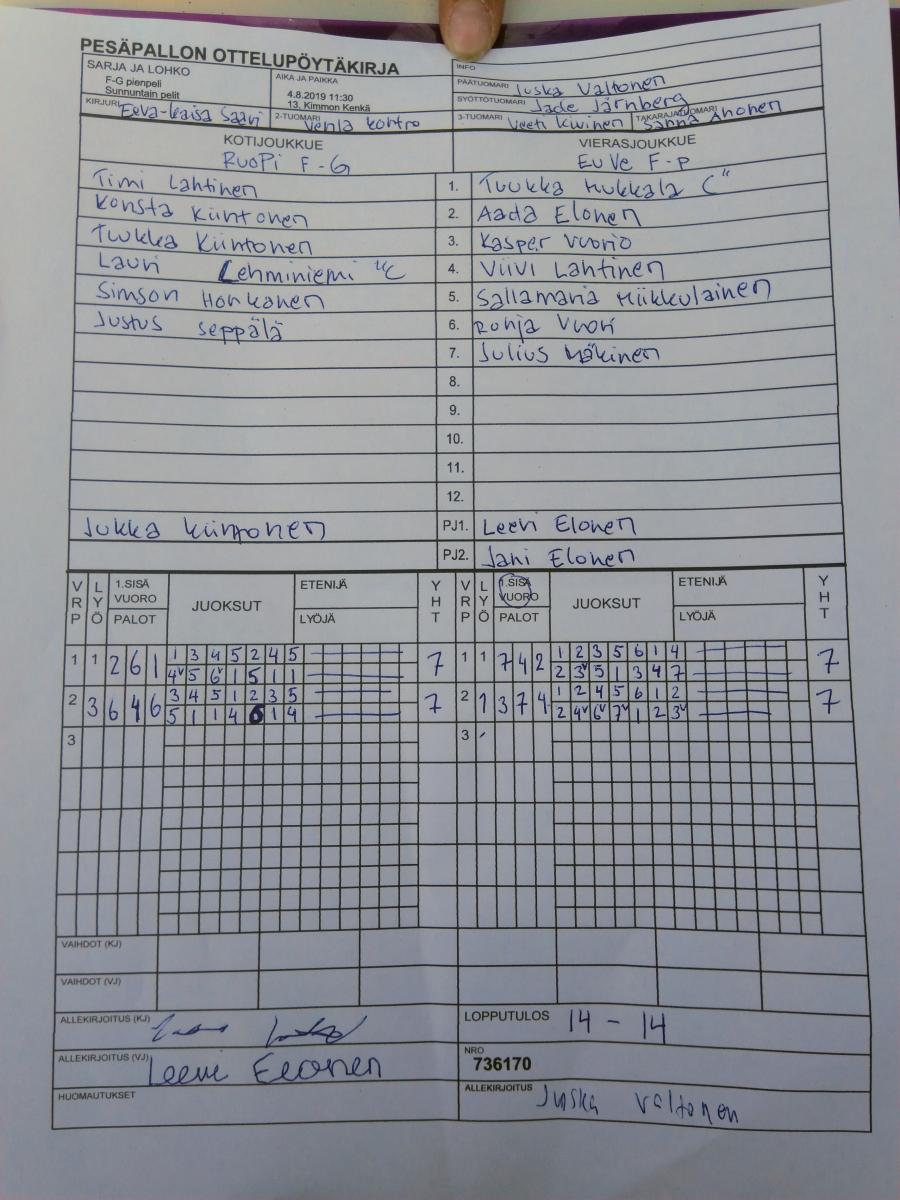 PESÄPALLON OTTELUPÖYTÄKIRJA
INFO
SARJA JA LOHKO
F-G pienpeli
Sunnuntain pelit
AIKA JA PAIKKA
4.8.2019 11:30
13, Kimmon Kenkä
PÄÄTUOMARI Juska Valtonen
SYÖTTÖTUOMARI Jade Järnberg
KIRJURI Eeva-Kaisa Saari
2-TUOMARI Venla Kontro
3-TUOMARI Veeti Kivinen
TAKARAJATUOMARI Sanna Ahonen
KOTIJOUKKUE
RuoPi F-G
VIERASJOUKKUE
EuVe F-p
Timi Lahtinen 1. Tuukka Mukkala C"
Konsta Kiintonen 2. Aada Elonen
Tuukka Kiintonen 3. Kasper Vuorio
Lauri Lehminiemi "C 4. Viivi Lahtinen
Simson Honkanen 5. Sallamaria Miikkulainen
Justus Seppälä 6. Ronja Vuori
7. Julius Mäkinen
8.
9.
10.
11.
12.
Jukka Kiintonen PJ1. Leevi Elonen
PJ2. Jani Elonen
VRP LYÖ 1.SISÄ VUORO PALOT JUOKSUT ETENIJÄ LYÖJÄ YHT VRP LYÖ 1.SISÄ VUORO PALOT JUOKSUT ETENIJÄ LYÖJÄ YHT
1 1 2 6 1 1 3 4 5 2 4 5 7 1 1 7 4 2 1 2 3 5 6 1 4 7
4v 5 6v 1 5 1 1 2 3v 5 1 3 4 7
2 3 6 4 6 3 4 5 1 2 3 5 7 2 1 3 7 4 1 2 4 5 6 1 2 7
5 1 1 4 6 1 4 2 4v 6v 7v 1 2 3v
3 3
VAIHDOT (KJ)
VAIHDOT (VJ)
ALLEKIRJOITUS (KJ)
LOPPUTULOS 14 - 14
ALLEKIRJOITUS (VJ) Leevi Elonen
NRO
736170
HUOMAUTUKSET
ALLEKIRJOITUS Juska Valtonen